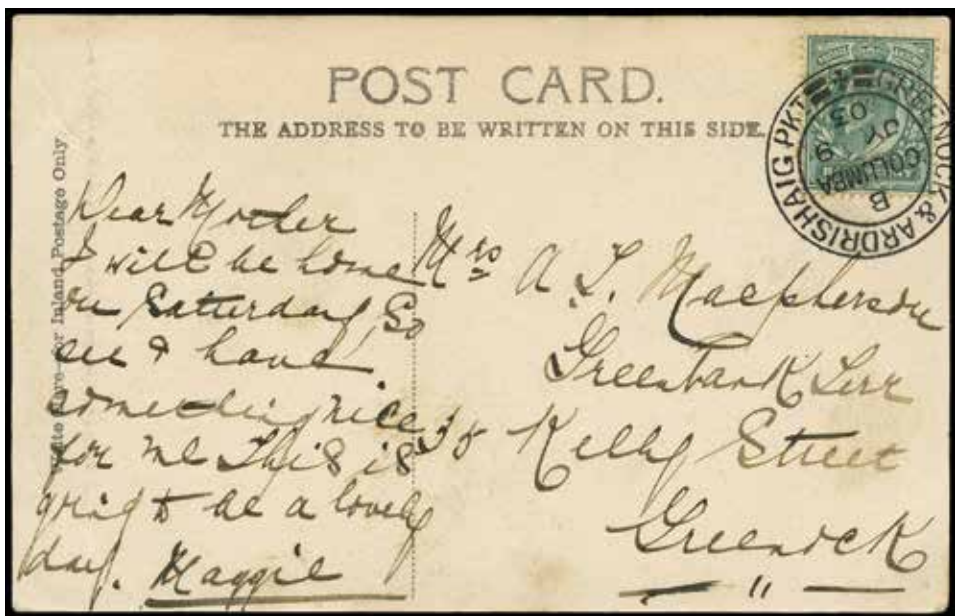 POST CARD.
THE ADDRESS TO BE WRITTEN ON THIS SIDE.
for Inland Postage Only
GREENOCK & ARDRISHAIG PKT
B
COLUMBA
9
JY
03
Dear Mother
I will be home
on Satterday, So
see & have
something nice
for me This is
going to be a lovely
day. Maggie
Mrs A. L. Macpherson
Greenbank Terr
35 Kelly Street
Greenock